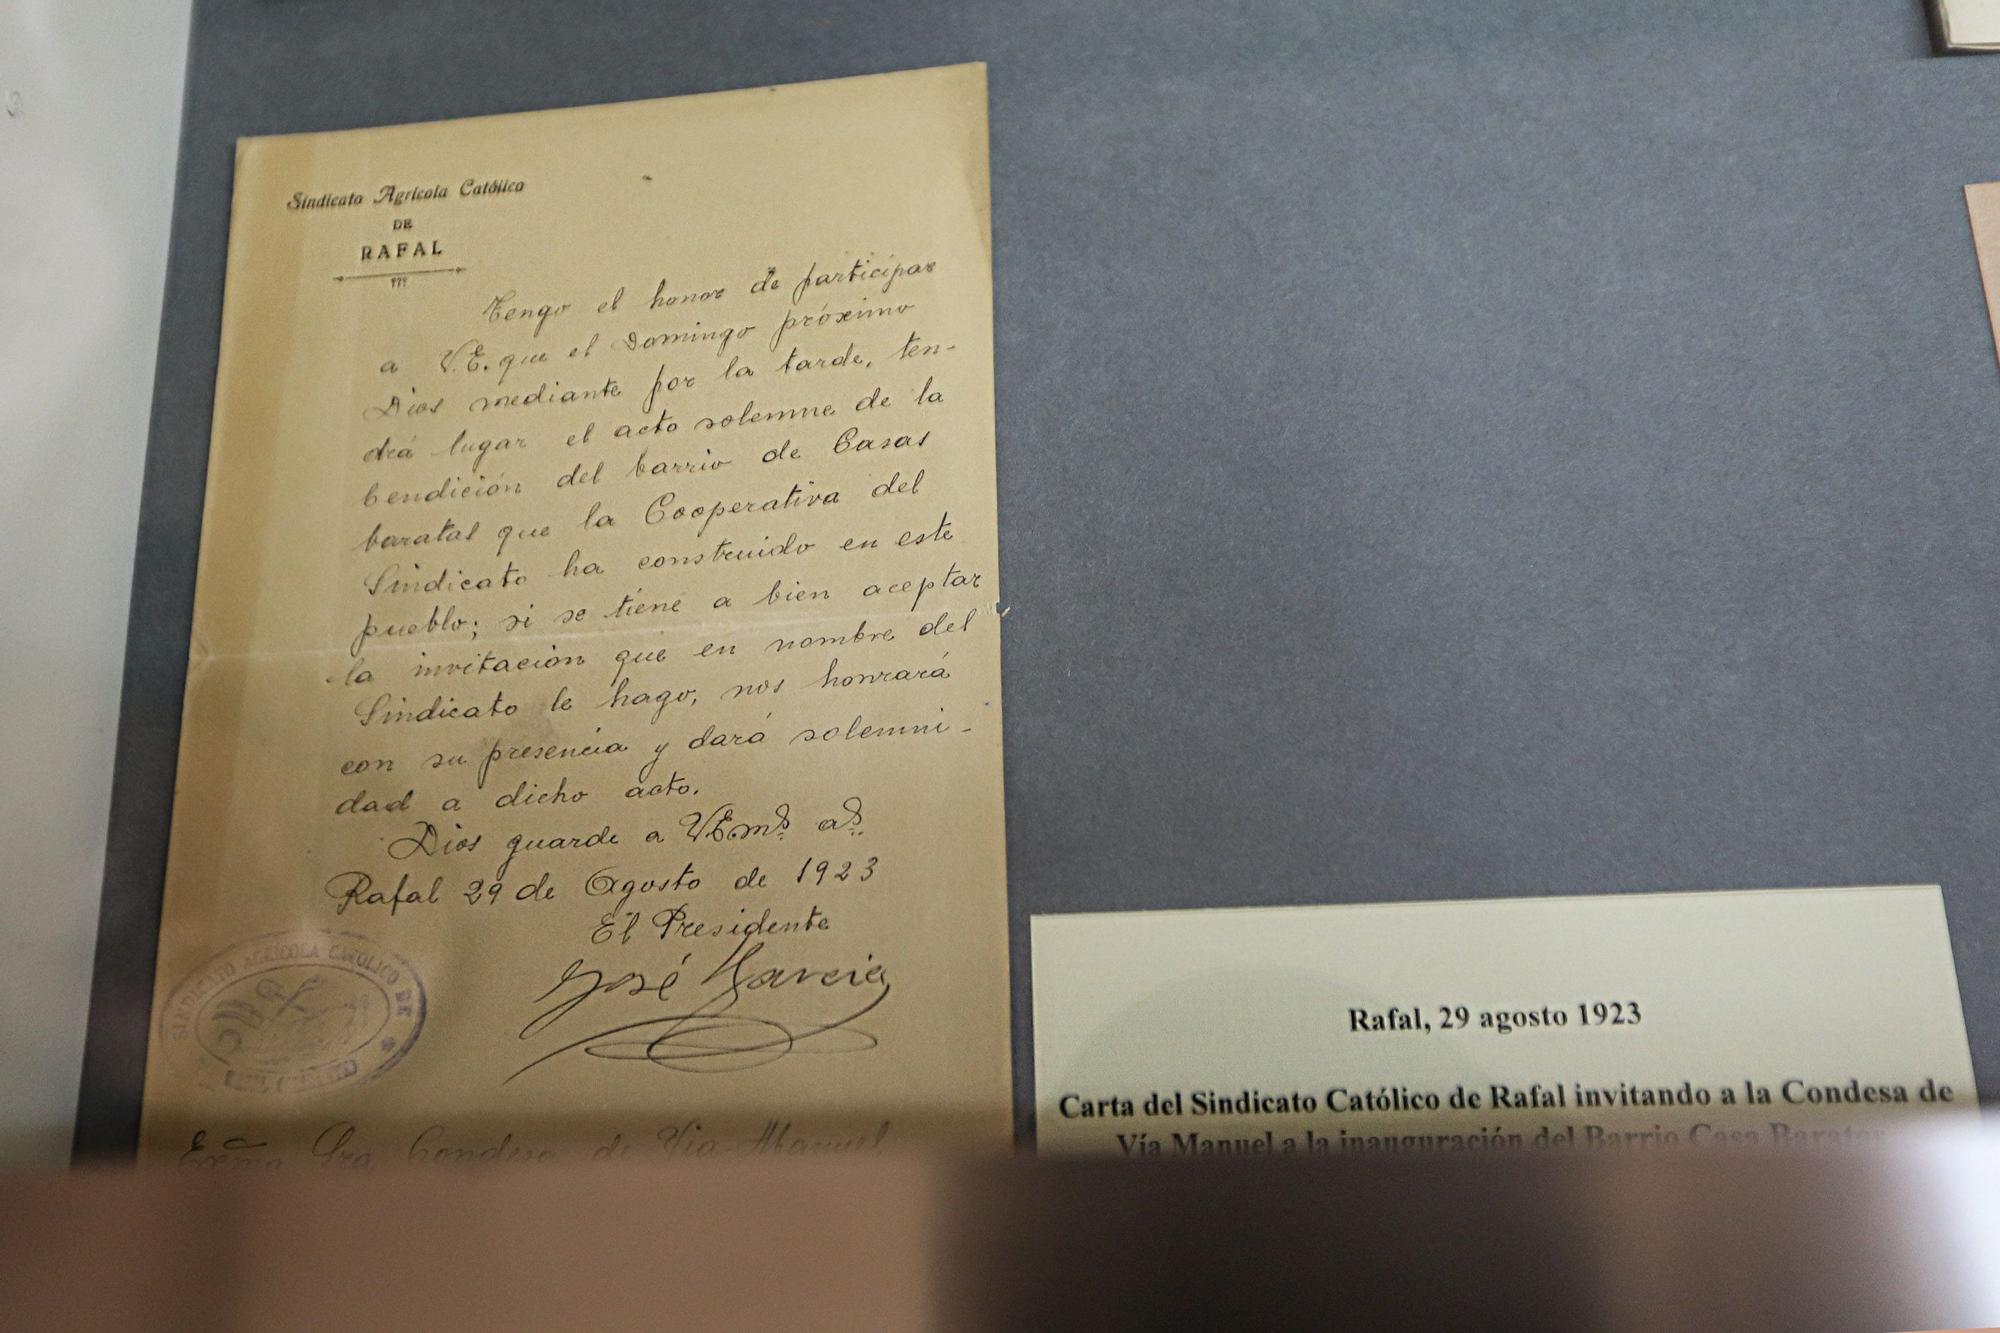 Sindicato Agrícola Católico
DE
RAFAL
Tengo el honor de participar
a V.E. que el Domingo próximo
Dios mediante por la tarde, ten-
drá lugar el acto solemne de la
bendición del barrio de Casas
baratas que la Cooperativa del
Sindicato ha construido en este
pueblo; si se tiene a bien aceptar
la invitación que en nombre del
Sindicato le hago, nos honrará
con su presencia y dará solemni-
dad a dicho acto.
Dios guarde a VE ms as
Rafal 29 de Agosto de 1923
El Presidente
José Garcia
SINDICATO AGRÍCOLA CATÓLICO DE
Exma Sra Condesa de Via-Manuel
Rafal, 29 agosto 1923
Carta del Sindicato Católico de Rafal invitando a la Condesa de
Vía Manuel a la inauguración del Barrio Casa Baratas